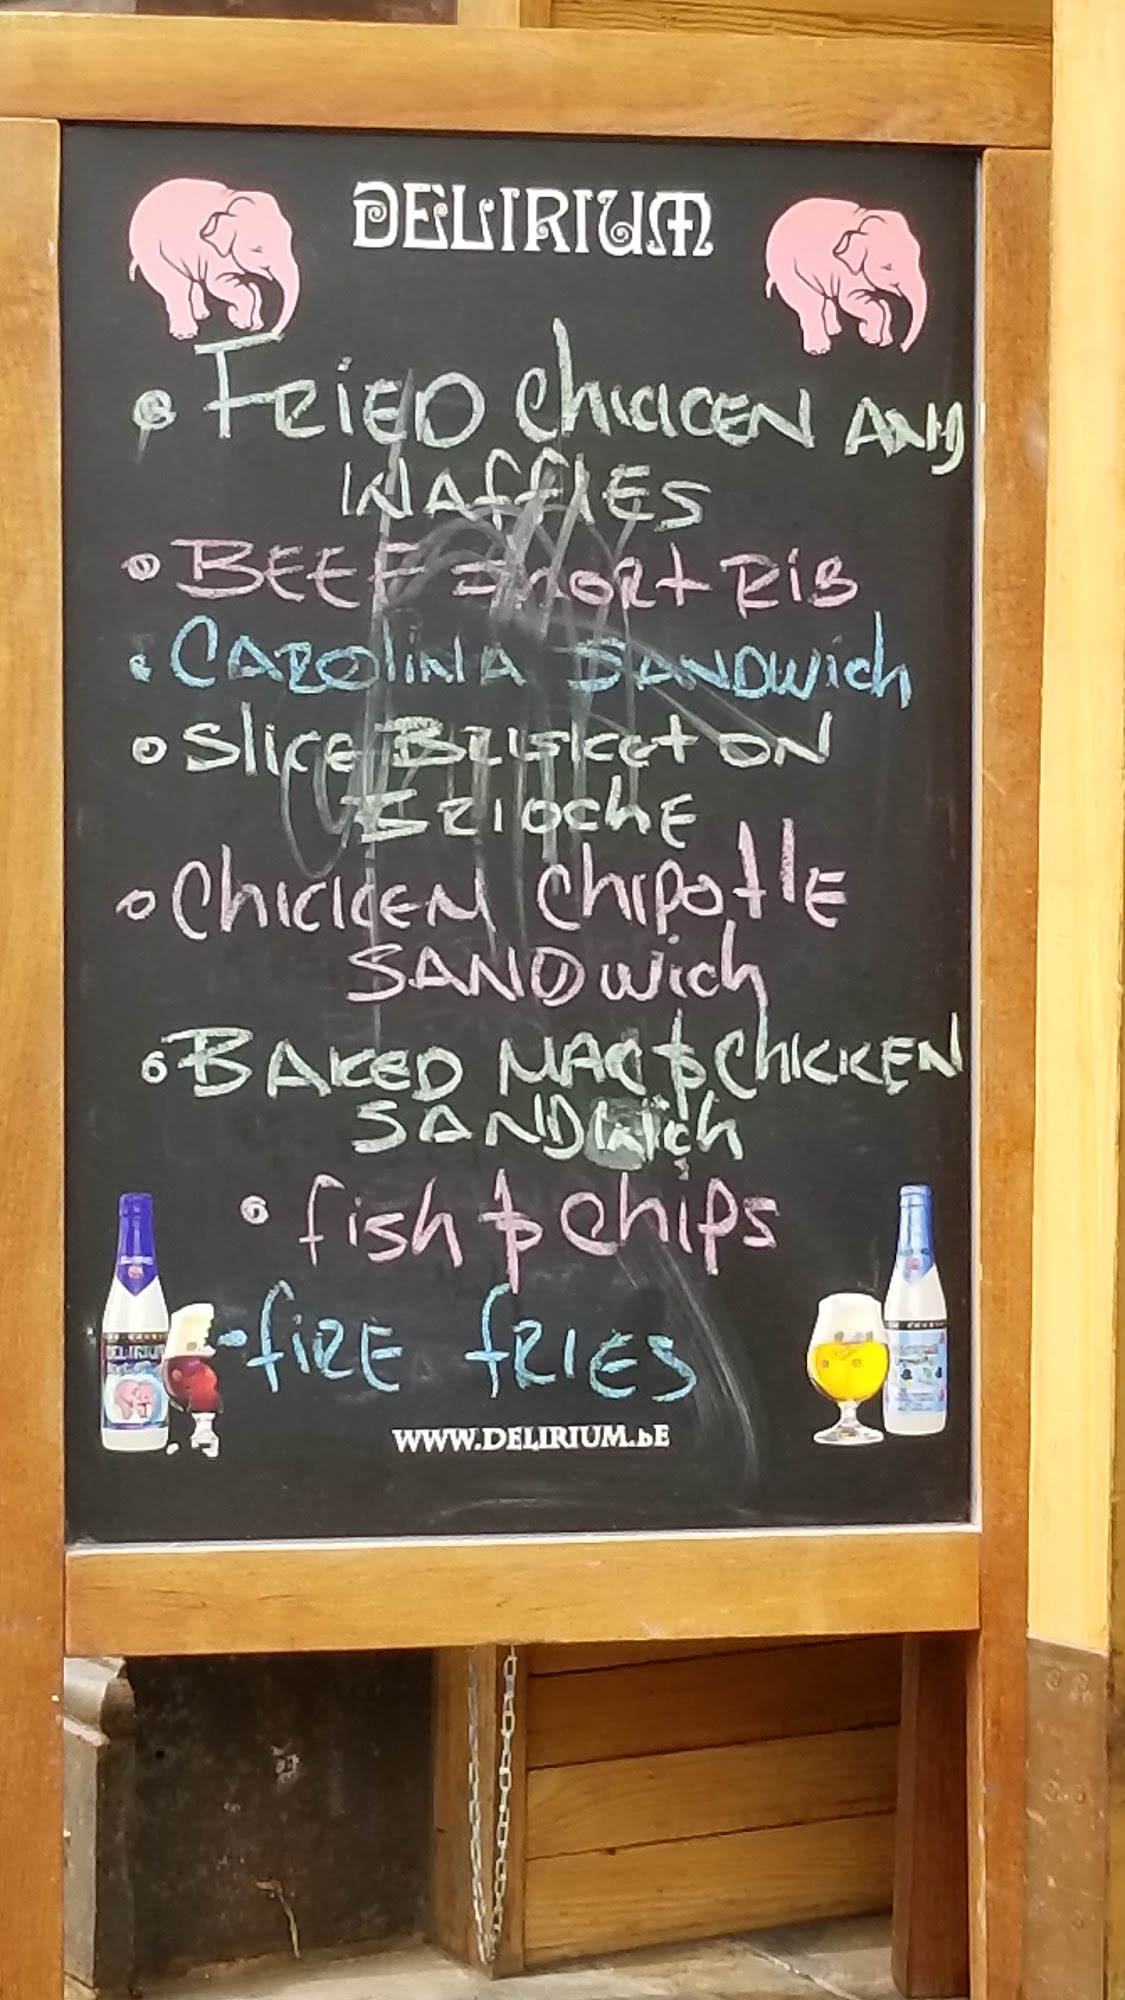 DELIRIUM
FRiED ChickEN AND
WAffLES
BEEF ShORt RiB
CAROliNA SANDWich
Slice BRiSket ON
BRiochE
ChickEN ChipotlE
SANDwich
BAkeD MAC & ChickEN
SANDWich
fish & chips
fiRE fRiES
DELIRIUM
WWW.DELIRIUM.bE